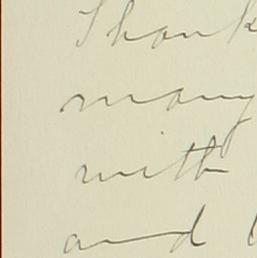 Thank
many
with
and